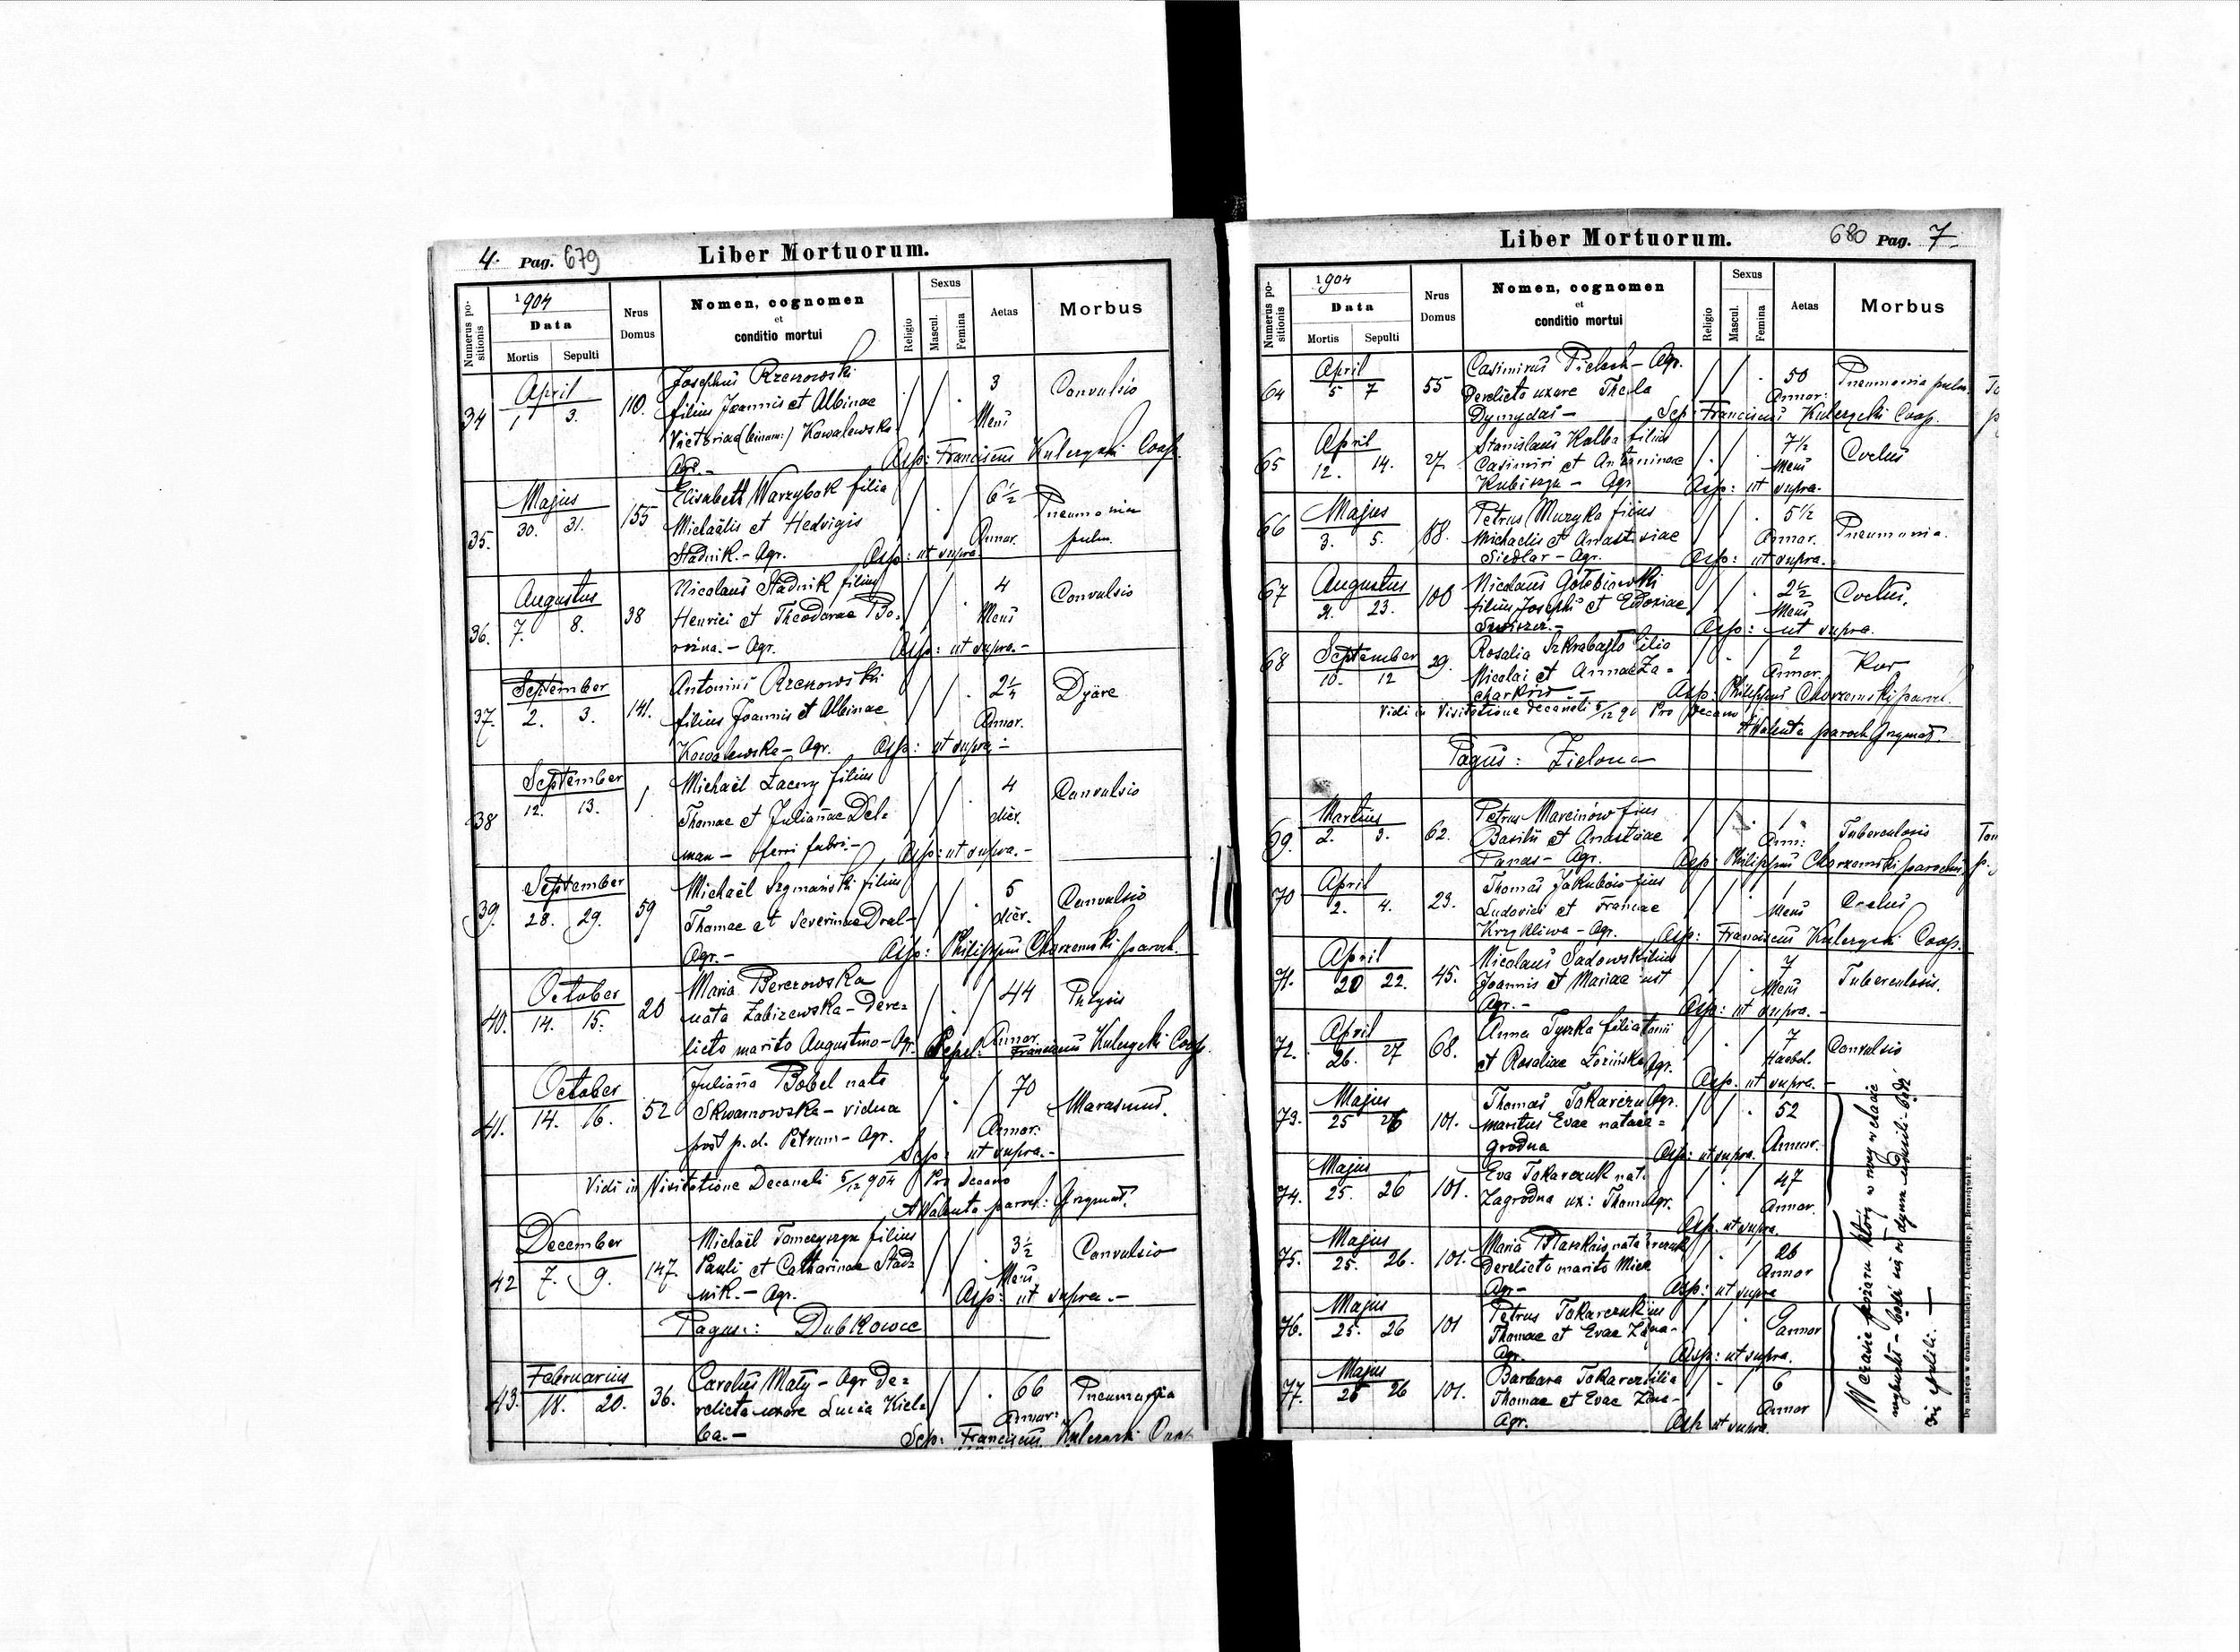 4. Pag. 679
Liber Mortuorum.
Numerus positionis
1904
Data
Mortis Sepulti
Nrus Domus
Nomen, cognomen
et
conditio mortui
Religio
Sexus
Mascul. Femina
Aetas
Morbus
34 April 1 3. 110. Josephus Rzezowski 3 Convulsio
filius Joannis et Albinae Mens
Victoriae (binom:) Kowalewska
Agr.- Asp: Franciscus Coop.
35. Majus 30. 31. 155 Elisabeth Warzybok filia 6½ Pneumonia
Michaëlis et Hedvigis Annor. pulm.
Stadnik.- Agr. Asp: ut supra
36. Augustus 7. 8. 38 Nicolaus Stadnik filius 4 Convulsio
Henrici et Theodorae Bo- Mens
rozna.- Agr. Asp: ut supra.-
37. September 2. 3. 141. Antonius Rzezowski 2¼ Dyäre
filius Joannis et Albinae Annor.
Kowalewska- Agr. Asp: ut supra -
38 September 12. 13. 1 Michaël Lacny filius 4 Convulsio
Thomae et Julianae Del- dier.
man - ferri fabri.- Asp: ut supra.-
39. September 28. 29. 59 Michaël Szymański filius 5 Convulsio
Thomae et Severinae Dral- dier.
Agr.- Asp: Philippus Chorzemski paroch.
40. October 14. 15. 20 Maria Berezowska 44
nata Zabizewska- Dere- Annor
licto marito Augustino- Agr. Sepel: Franciscus Coop.
41. October 14. 16. 52 Juliana Bobel nata 70 Marasmus.
Skwarnowska- vidua Annor.
post p. d. Petrum- Agr. Sep: ut supra.-
Vidi in Visitatione Decanali 5/12 904 Pro Decano
AWalenta paroch: Grzymał.
42 December 7. 9. 147. Michaël Tomczyszyn filius 3½ Convulsio
Pauli et Catharinae Stad- Mens
nik.- Agr. Asp: ut supra.-
Pagus: Dubkowce
43. Februarius 18. 20. 36. Carolus Mały- Agr De- 66 Pneumonia
relicta uxore Lucia Kiel- Annor:
ba.- Sep: Franciscus
Liber Mortuorum.
680 Pag. 7
Numerus positionis
1904
Data
Mortis Sepulti
Nrus Domus
Nomen, cognomen
et
conditio mortui
Religio
Sexus
Mascul. Femina
Aetas
Morbus
64 April 5 7 55 Casimirus Pielech- Agr. 50 Pneumonia pulm.
Derelicto uxore Thecla Annor:
Dymydas- Sep: Franciscus Coop.
65 April 12. 14. 27 Stanislaus Kalba filius 7½
Casimiri et Antoninae Mens
Kubiszyn- Agr Asp: ut supra.
66 Majus 3. 5. 88. Petrus Muzyka filius 5½ Pneumonia.
Michaelis et Anastasiae Annor.
Siedlar- Agr. Asp: ut supra.-
67 Augustus 21. 23. 100 Nicolaus Gołebiowski 2½
filius Josephi et Eudoxiae Mens
Asp: ut supra.
68 September 10. 12 29. Rosalia filia 2 Kur
Nicolai et Annae Za- Annor.
charków.- Asp: Philippus Chorzemski paroch.
Vidi in Visitatione decanali 5/12 90 Pro Decano
AWalenta paroch Grzymał.
Pagus: Zielona
69. Martius 2. 3. 62. Petrus Marcinów filius 1 Tuberculosis
Basilii et Anastasiae Ann:
Panas- Agr. Asp: Philippus Chorzemski parochus
70 April 2. 4. 23. Thomas Jakubów filius 1
Ludovici et Franciscae Mens
Krzykliwa- Agr. Asp: Franciscus Coop.
71. April 20 22. 45. Nicolaus Sadowski filius 7 Tuberculosis.
Joannis et Mariae Mens
Agr.- Asp: ut supra.-
72. April 26. 27 68. Anna Tyszka filia 7 Convulsio
et Rosaliae Łozińska Agr. Hebd.
Asp. ut supra.-
73. Majus 25 26 101. Thomas Tokarczuk Agr. 52
maritus Evae natae Za- Annor.
grodna Asp: ut supra.
74. Majus 25. 26 101. Eva Tokarczuk nat. 47
Zagrodna ux: Thomae Agr. Annor.
Asp. ut supra
75. Majus 25. 26. 101. Maria nata 26
Derelicto marito Mich Annor
Agr- Asp: ut supra
76. Majus 25. 26 101 Petrus Tokarczuk filius
Thomae et Evae Annor
Agr. Asp: ut supra.
77. Majus 25 26 101. Barbara Tokarczuk filia 6
Thomae et Evae Annor
Agr. Asp ut supra.
W czasie pożaru który w nocy w chacie
wybuchł- bądź się od dymu udusili- bądź
się spalili.-